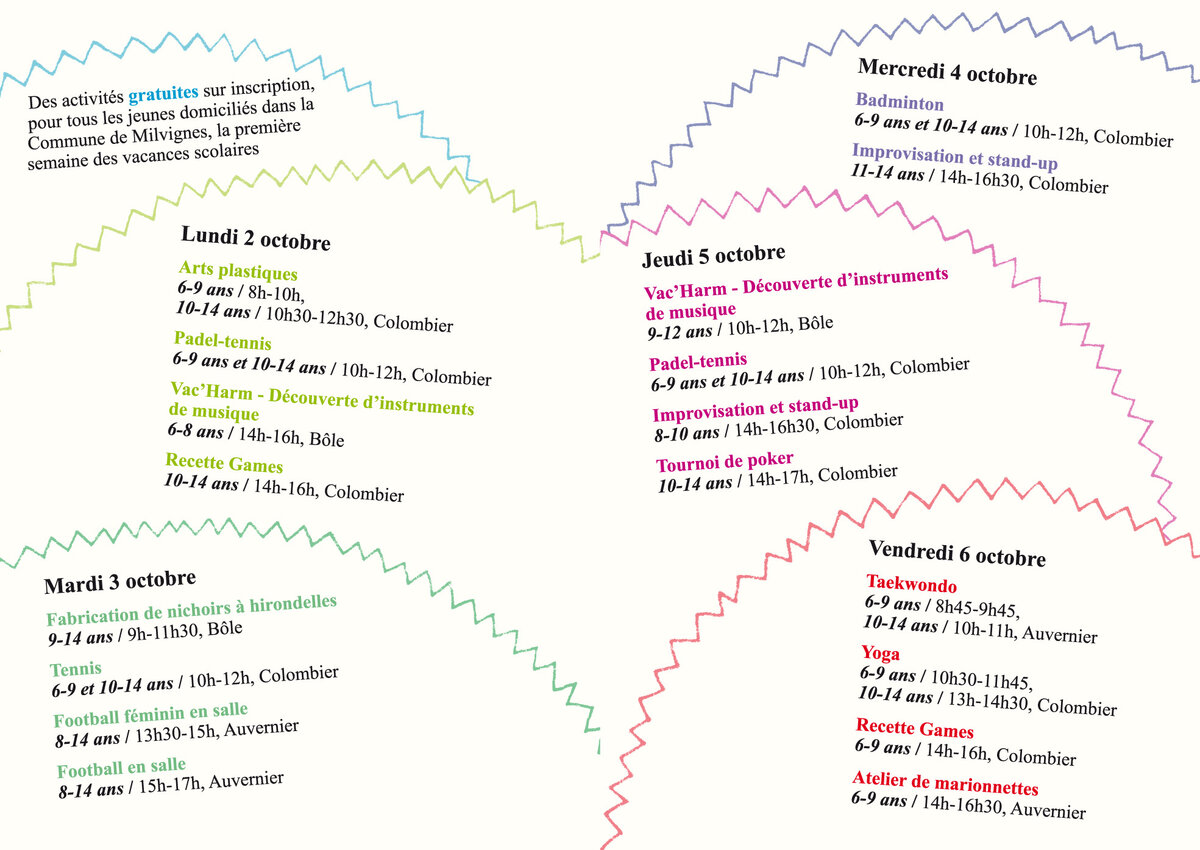 Des activités gratuites sur inscription,
pour tous les jeunes domiciliés dans la
Commune de Milvignes, la première
semaine des vacances scolaires
Lundi 2 octobre
Arts plastiques
6-9 ans / 8h-10h,
10-14 ans / 10h30-12h30, Colombier
Padel-tennis
6-9 ans et 10-14 ans / 10h-12h, Colombier
Vac'Harm - Découverte d'instruments
de musique
6-8 ans / 14h-16h, Bôle
Recette Games
10-14 ans / 14h-16h, Colombier
Mardi 3 octobre
Fabrication de nichoirs à hirondelles
9-14 ans / 9h-11h30, Bôle
Tennis
6-9 et 10-14 ans / 10h-12h, Colombier
Football féminin en salle
8-14 ans / 13h30-15h, Auvernier
Football en salle
8-14 ans / 15h-17h, Auvernier
Mercredi 4 octobre
Badminton
6-9 ans et 10-14 ans / 10h-12h, Colombier
Improvisation et stand-up
11-14 ans / 14h-16h30, Colombier
Jeudi 5 octobre
Vac'Harm - Découverte d'instruments
de musique
9-12 ans / 10h-12h, Bôle
Padel-tennis
6-9 ans et 10-14 ans / 10h-12h, Colombier
Improvisation et stand-up
8-10 ans / 14h-16h30, Colombier
Tournoi de poker
10-14 ans / 14h-17h, Colombier
Vendredi 6 octobre
Taekwondo
6-9 ans / 8h45-9h45,
10-14 ans / 10h-11h, Auvernier
Yoga
6-9 ans / 10h30-11h45,
10-14 ans / 13h-14h30, Colombier
Recette Games
6-9 ans / 14h-16h, Colombier
Atelier de marionnettes
6-9 ans / 14h-16h30, Auvernier